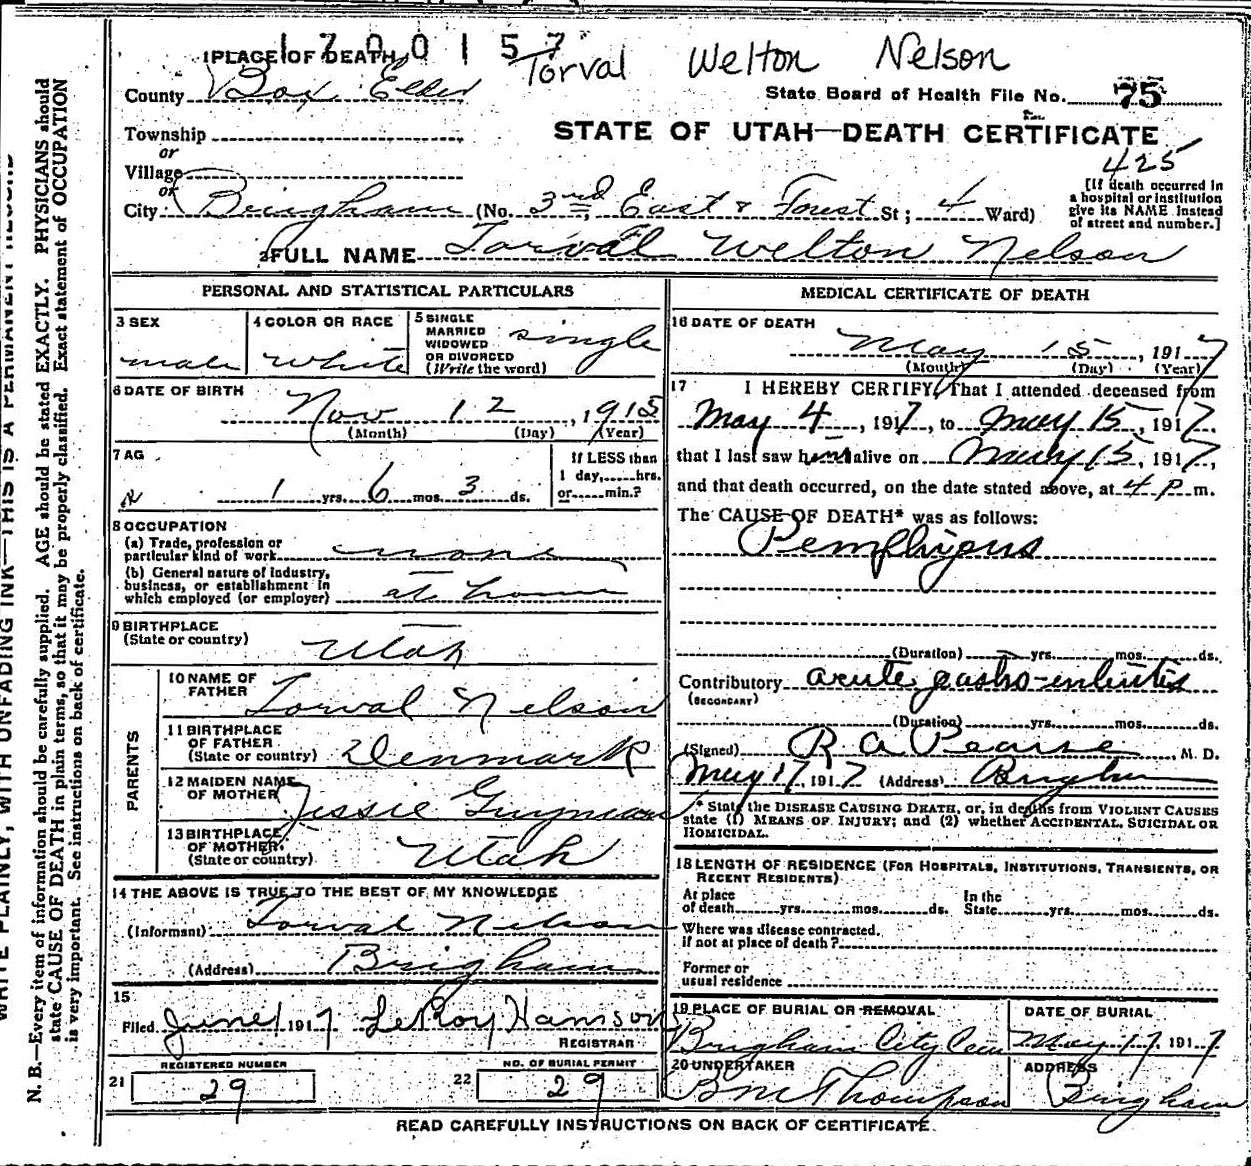 1700157
1 PLACE OF DEATH
Torval Welton Nelson
County Box Elder
State Board of Health File No. 75
Township
or
STATE OF UTAH—DEATH CERTIFICATE
Village
or
425
City Brigham (No. 3rd East & Forest St; 4 Ward)
[If death occurred in
a hospital or institution
give its NAME instead
of street and number.]
2 FULL NAME Torval Welton Nelson
PERSONAL AND STATISTICAL PARTICULARS
3 SEX
male
4 COLOR OR RACE
White
5 SINGLE
MARRIED
WIDOWED
OR DIVORCED
(Write the word)
single
6 DATE OF BIRTH
Nov 12, 1915
(Month) (Day) (Year)
7 AG
1 yrs. 6 mos. 3 ds.
If LESS than
1 day, hrs.
or min.?
8 OCCUPATION
(a) Trade, profession or
particular kind of work none
(b) General nature of industry,
business, or establishment in
which employed (or employer) at home
9 BIRTHPLACE
(State or country)
Utah
PARENTS
10 NAME OF
FATHER
Torval Nelson
11 BIRTHPLACE
OF FATHER
(State or country) Denmark
12 MAIDEN NAME
OF MOTHER Jessie Guyman
13 BIRTHPLACE
OF MOTHER
(State or country) Utah
14 THE ABOVE IS TRUE TO THE BEST OF MY KNOWLEDGE
(Informant) Torval Nelson
(Address) Brigham
15
Filed June 1 1917 LeRoy Hamson
REGISTRAR
REGISTERED NUMBER
21 29
NO. OF BURIAL PERMIT
22 29
MEDICAL CERTIFICATE OF DEATH
16 DATE OF DEATH
May 15, 1917
(Month) (Day) (Year)
17 I HEREBY CERTIFY, That I attended deceased from
May 4, 1917, to May 15, 1917,
that I last saw him alive on May 15, 1917,
and that death occurred, on the date stated above, at 4 P. m.
The CAUSE OF DEATH* was as follows:
Pemphigus
(Duration) yrs. mos. ds.
Contributory acute gastro-enteritis
(SECONDARY)
(Duration) yrs. mos. ds.
(Signed) R A Pearse M. D.
May 17, 1917 (Address) Brigham
* State the DISEASE CAUSING DEATH, or, in deaths from VIOLENT CAUSES
state (1) MEANS OF INJURY; and (2) whether ACCIDENTAL, SUICIDAL OR
HOMICIDAL.
18 LENGTH OF RESIDENCE (FOR HOSPITALS, INSTITUTIONS, TRANSIENTS, OR
RECENT RESIDENTS)
At place
of death yrs. mos. ds.
In the
State yrs. mos. ds.
Where was disease contracted.
if not at place of death?
Former or
usual residence
19 PLACE OF BURIAL OR REMOVAL
Brigham City Cem
DATE OF BURIAL
May 17, 1917
20 UNDERTAKER
B M Thompson
ADDRESS
Brigham
READ CAREFULLY INSTRUCTIONS ON BACK OF CERTIFICATE.
WRITE PLAINLY, WITH UNFADING INK—THIS IS A PERMANENT RECORD
N. B.—Every item of information should be carefully supplied. AGE should be stated EXACTLY. PHYSICIANS should
state CAUSE OF DEATH in plain terms, so that it may be properly classified. Exact statement of OCCUPATION
is very important. See instructions on back of certificate.